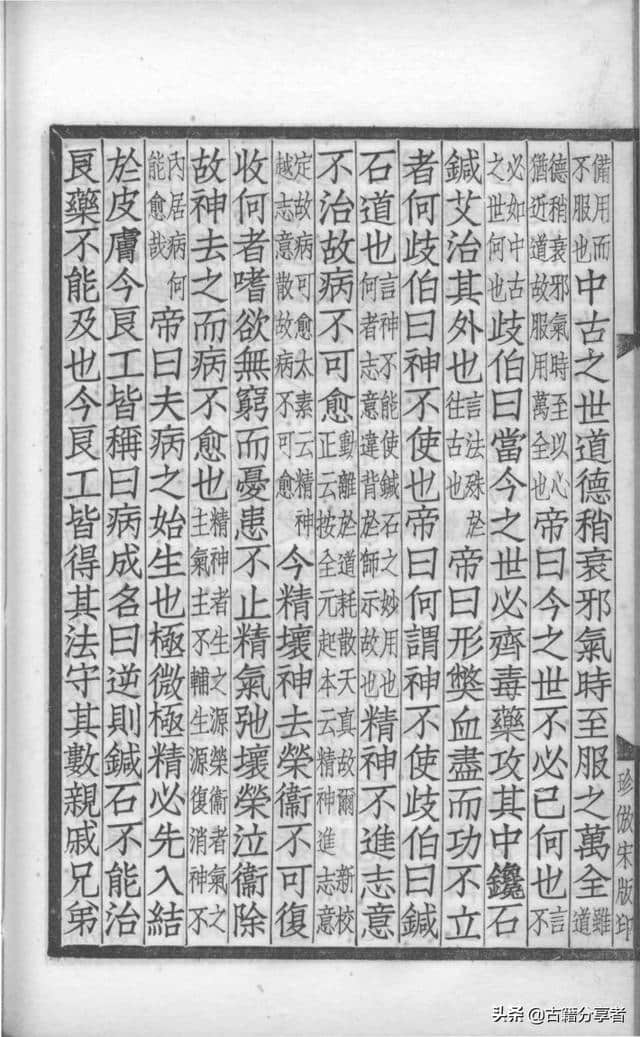 珍倣宋版印
備用而不服也中古之世道德稍衰邪氣時至服之萬全雖道
德稍衰邪氣時至以心猶近道故服用萬全也帝曰今之世不必已何也言不
必如中古之世何也歧伯曰當今之世必齊毒藥攻其中鑱石
鍼艾治其外也言法殊於往古也帝曰形獘血盡而功不立
者何歧伯曰神不使也帝曰何謂神不使歧伯曰鍼
石道也言神不能使鍼石之妙用也何者志意違背於師示故也精神不進志意
不治故病不可愈動離於道耗散天真故爾 新校正云按全元起本云精神進志意
定故病可愈太素云精神越志意散故病不可愈今精壞神去榮衞不可復
收何者嗜欲無窮而憂患不止精氣弛壞榮泣衞除
故神去之而病不愈也精神者生之源榮衞者氣之主氣主不輔生源復消神不
內居病何能愈哉帝曰夫病之始生也極微極精必先入結
於皮膚今良工皆稱曰病成名曰逆則鍼石不能治
良藥不能及也今良工皆得其法守其數親戚兄弟
头条 @古籍分享者